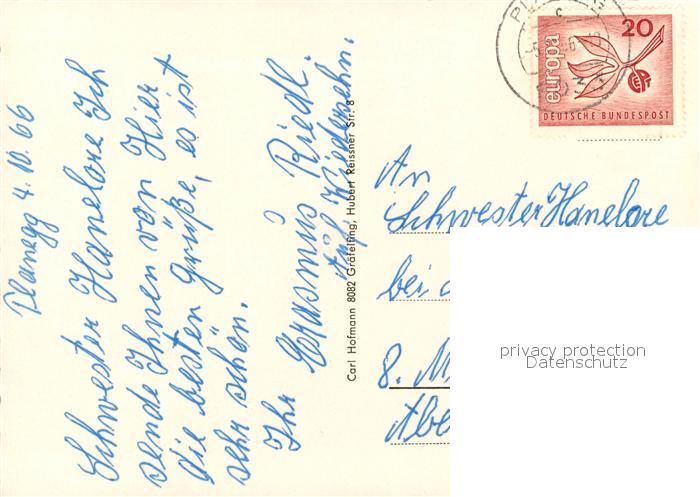 Planegg 4.10.66
Schwester Hanelore Ich
sende Ihnen von Hier
die besten Grüße, es ist
sehr schön.
Ihr Erasmus Riedl.
Auf Wiedersehn.
Carl Hofmann 8082 Gräfelfing, Hubert Reissner Str. 8
europa
20
DEUTSCHE BUNDESPOST
An
Schwester Hanelore
bei
8. M
privacy protection
Datenschutz